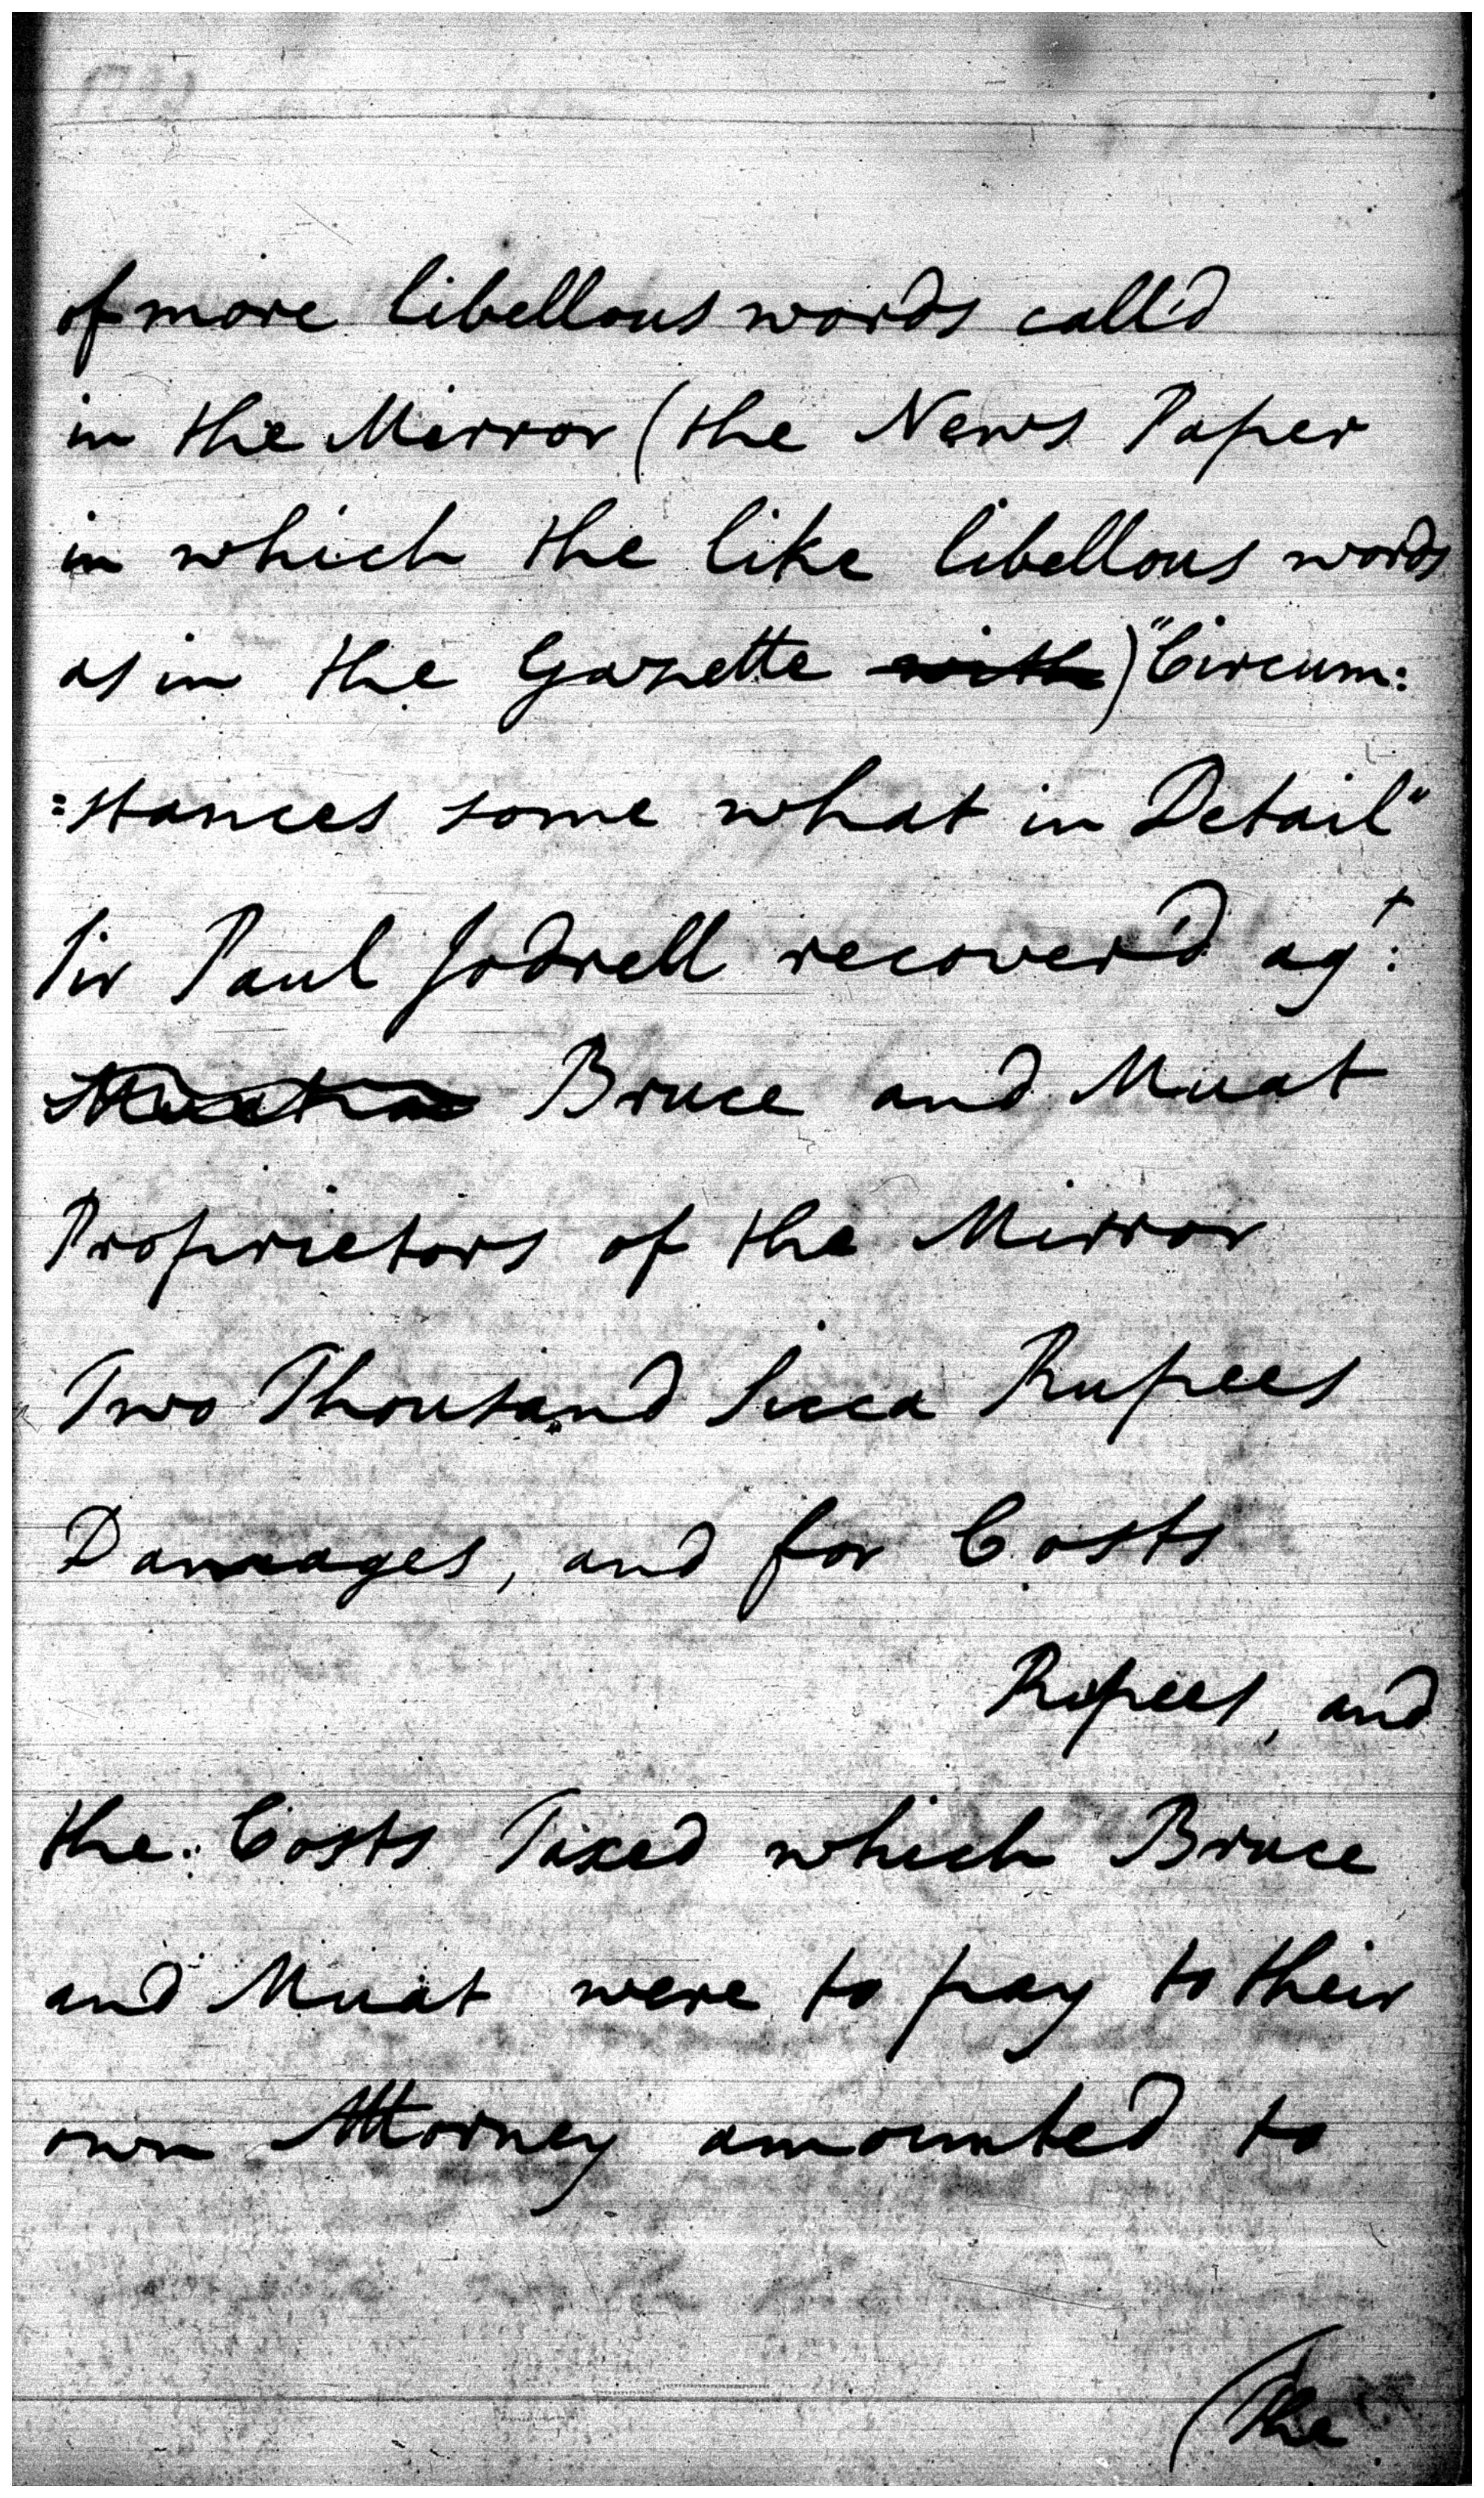 of more libellous words call'd
in the Mirror (the News Paper
in which the like libellous words
as in the Gazette with) "Circum:
=stances some what in Detail"
Sir Paul Jodrell recover'd agt:
Bruce and Muat
Proprietors of the Mirror
Two Thousand Sicca Rupees
Damages, and for Costs
Rupees, and
the Costs Taxed which Bruce
and Muat were to pay to their
own Attorney amounted to
(The